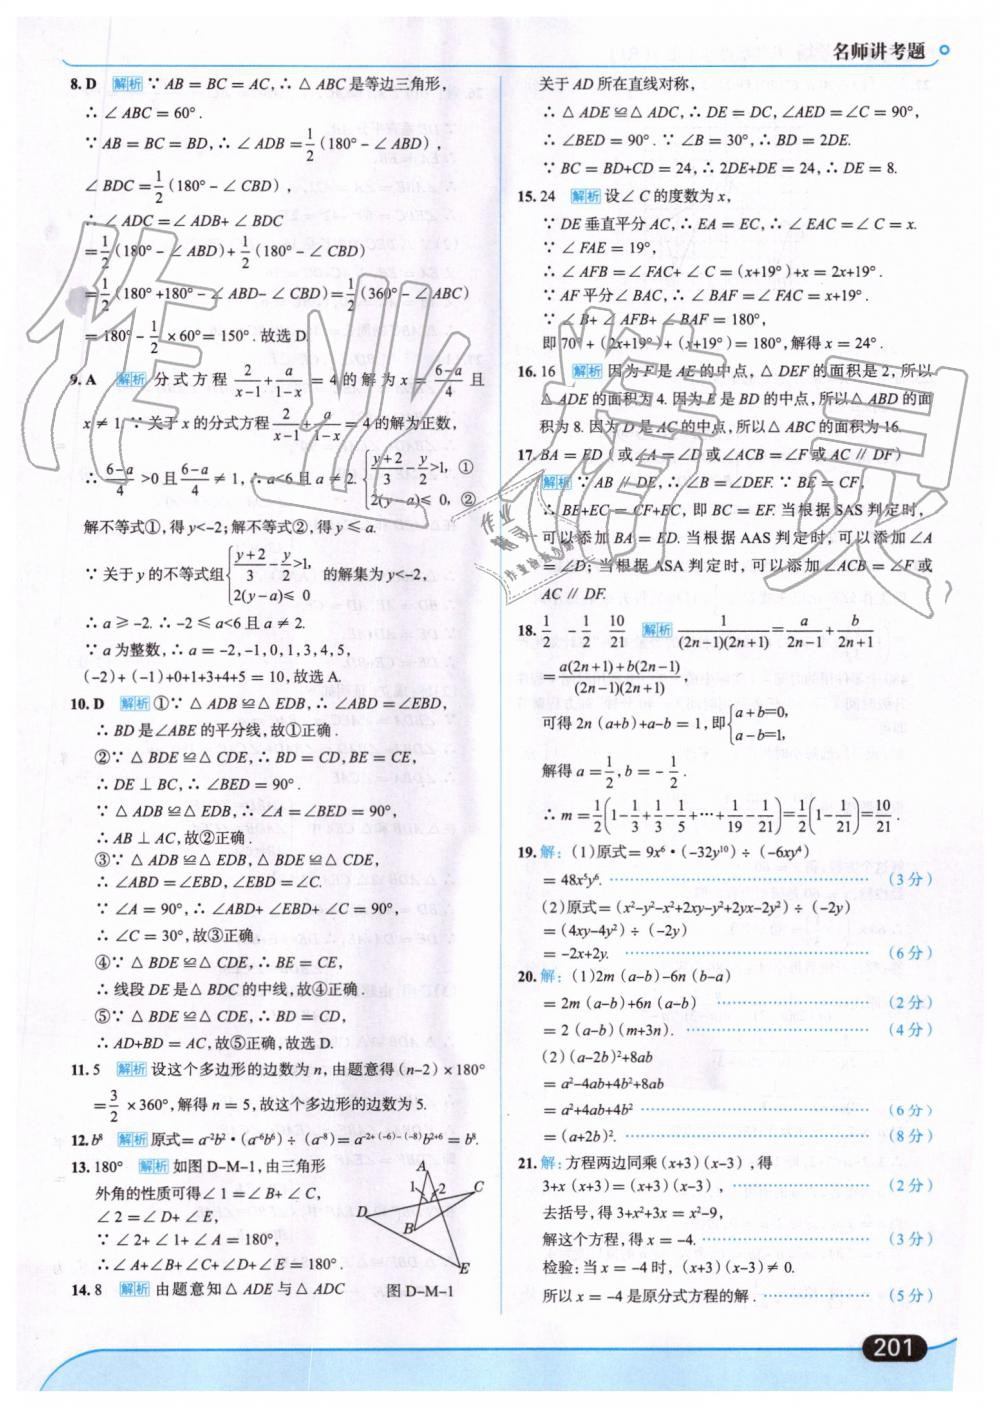 名师讲考题
8. D 解析 ∵ AB = BC = AC, ∴ △ ABC 是等边三角形,
∴ ∠ ABC = 60°.
∵ AB = BC = BD, ∴ ∠ ADB = 1/2 (180° - ∠ ABD),
∠ BDC = 1/2 (180° - ∠ CBD),
∴ ∠ ADC = ∠ ADB + ∠ BDC
= 1/2 (180° - ∠ ABD) + 1/2 (180° - ∠ CBD)
= 1/2 (180° + 180° - ∠ ABD - ∠ CBD) = 1/2 (360° - ∠ ABC)
= 180° - 1/2 × 60° = 150°. 故选 D.
9. A 解析 分式方程 2/(x-1) + a/(1-x) = 4 的解为 x = (6-a)/4 且
x ≠ 1. ∵ 关于 x 的分式方程 2/(x-1) + a/(1-x) = 4 的解为正数,
∴ (6-a)/4 > 0 且 (6-a)/4 ≠ 1, ∴ a<6 且 a ≠ 2. { (y+2)/3 - y/2 > 1, ① 2(y-a) ≤ 0, ②
解不等式①, 得 y<-2; 解不等式②, 得 y ≤ a.
∵ 关于 y 的不等式组 { (y+2)/3 - y/2 > 1, 2(y-a) ≤ 0 的解集为 y<-2,
∴ a ≥ -2. ∴ -2 ≤ a<6 且 a ≠ 2.
∵ a 为整数, ∴ a = -2, -1, 0, 1, 3, 4, 5,
(-2) + (-1)+0+1+3+4+5 = 10, 故选 A.
10. D 解析 ①∵ △ ADB ≌ △ EDB, ∴ ∠ABD = ∠EBD,
∴ BD 是∠ABE 的平分线, 故①正确.
②∵ △ BDE ≌ △ CDE, ∴ BD = CD, BE = CE,
∴ DE ⊥ BC, ∴ ∠BED = 90°.
∵ △ ADB ≌ △ EDB, ∴ ∠A = ∠BED = 90°,
∴ AB ⊥ AC, 故②正确.
③∵ △ ADB ≌ △ EDB, △ BDE ≌ △ CDE,
∴ ∠ABD = ∠EBD, ∠EBD = ∠C.
∵ ∠A = 90°, ∴ ∠ABD+ ∠EBD+ ∠C = 90°,
∴ ∠C = 30°, 故③正确.
④∵ △ BDE ≌ △ CDE, ∴ BE = CE,
∴ 线段 DE 是△ BDC 的中线, 故④正确.
⑤∵ △ BDE ≌ △ CDE, ∴ BD = CD,
∴ AD+BD = AC, 故⑤正确, 故选 D.
11. 5 解析 设这个多边形的边数为 n, 由题意得 (n-2) × 180°
= 3/2 × 360°, 解得 n = 5, 故这个多边形的边数为 5.
12. b⁸ 解析 原式 = a⁻²b² · (a⁻⁶b⁶) ÷ (a⁻⁸) = a⁻²⁺⁽⁻⁶⁾⁻⁽⁻⁸⁾b²⁺⁶ = b⁸.
13. 180° 解析 如图 D-M-1, 由三角形
外角的性质可得∠ 1 = ∠ B+ ∠ C,
∠ 2 = ∠ D+ ∠ E,
∵ ∠ 2+ ∠ 1+ ∠ A = 180°,
∴ ∠ A+ ∠ B+ ∠ C+ ∠ D+ ∠ E = 180°.
A
1
2
C
D
B
E
图 D-M-1
14. 8 解析 由题意知△ ADE 与△ ADC
关于 AD 所在直线对称,
∴ △ ADE ≌ △ ADC, ∴ DE = DC, ∠AED = ∠C = 90°,
∴ ∠BED = 90°. ∵ ∠B = 30°, ∴ BD = 2DE.
∵ BC = BD+CD = 24, ∴ 2DE+DE = 24, ∴ DE = 8.
15. 24 解析 设∠ C 的度数为 x,
∵ DE 垂直平分 AC, ∴ EA = EC, ∴ ∠ EAC = ∠ C = x.
∵ ∠ FAE = 19°,
∴ ∠ AFB = ∠ FAC+ ∠ C = (x+19°)+x = 2x+19°.
∵ AF 平分∠ BAC, ∴ ∠ BAF = ∠ FAC = x+19°.
∵ ∠ B+ ∠ AFB+ ∠ BAF = 180°,
即 70° + (2x+19°) + (x+19°) = 180°, 解得 x = 24°.
16. 16 解析 因为 F 是 AE 的中点, △ DEF 的面积是 2, 所以
△ ADE 的面积为 4. 因为 E 是 BD 的中点, 所以△ ABD 的面
积为 8. 因为 D 是 AC 的中点, 所以△ ABC 的面积为 16.
17. BA = ED (或∠A = ∠D 或∠ACB = ∠F 或 AC ∥ DF)
解析 ∵ AB ∥ DE, ∴ ∠B = ∠DEF. ∵ BE = CF,
∴ BE+EC = CF+FC, 即 BC = EF. 当根据 SAS 判定时,
可以添加 BA = ED. 当根据 AAS 判定时, 可以添加∠A
= ∠D; 当根据 ASA 判定时, 可以添加∠ACB = ∠F 或
AC ∥ DF.
18. 1/2 -1/2 10/21 解析 1/((2n-1)(2n+1)) = a/(2n-1) + b/(2n+1)
= (a(2n+1)+b(2n-1))/((2n-1)(2n+1)),
可得 2n (a+b)+a-b = 1, 即 { a+b=0, a-b=1,
解得 a = 1/2, b = -1/2.
∴ m = 1/2 (1 - 1/3 + 1/3 - 1/5 + ··· + 1/19 - 1/21) = 1/2 (1 - 1/21) = 10/21.
19. 解: (1)原式 = 9x⁶ · (-32y¹⁰) ÷ (-6xy⁴)
= 48x⁵y⁶. (3 分)
(2)原式 = (x²-y²-x²+2xy-y²+2yx-2y²) ÷ (-2y)
= (4xy-4y²) ÷ (-2y)
= -2x+2y. (6 分)
20. 解: (1)2m (a-b)-6n (b-a)
= 2m (a-b)+6n (a-b) (2 分)
= 2 (a-b) (m+3n). (4 分)
(2) (a-2b)²+8ab
= a²-4ab+4b²+8ab
= a²+4ab+4b² (6 分)
= (a+2b)². (8 分)
21. 解: 方程两边同乘 (x+3) (x-3), 得
3+x (x+3) = (x+3) (x-3), (2 分)
去括号, 得 3+x²+3x = x²-9,
解这个方程, 得 x = -4. (3 分)
检验: 当 x = -4 时, (x+3) (x-3) ≠ 0.
所以 x = -4 是原分式方程的解. (5 分)
201
作业精灵